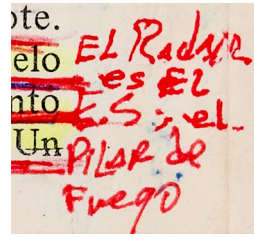 ote.
elo
nto
Un
EL Radar
es El
E.S. el
PiLAR de
Fuego